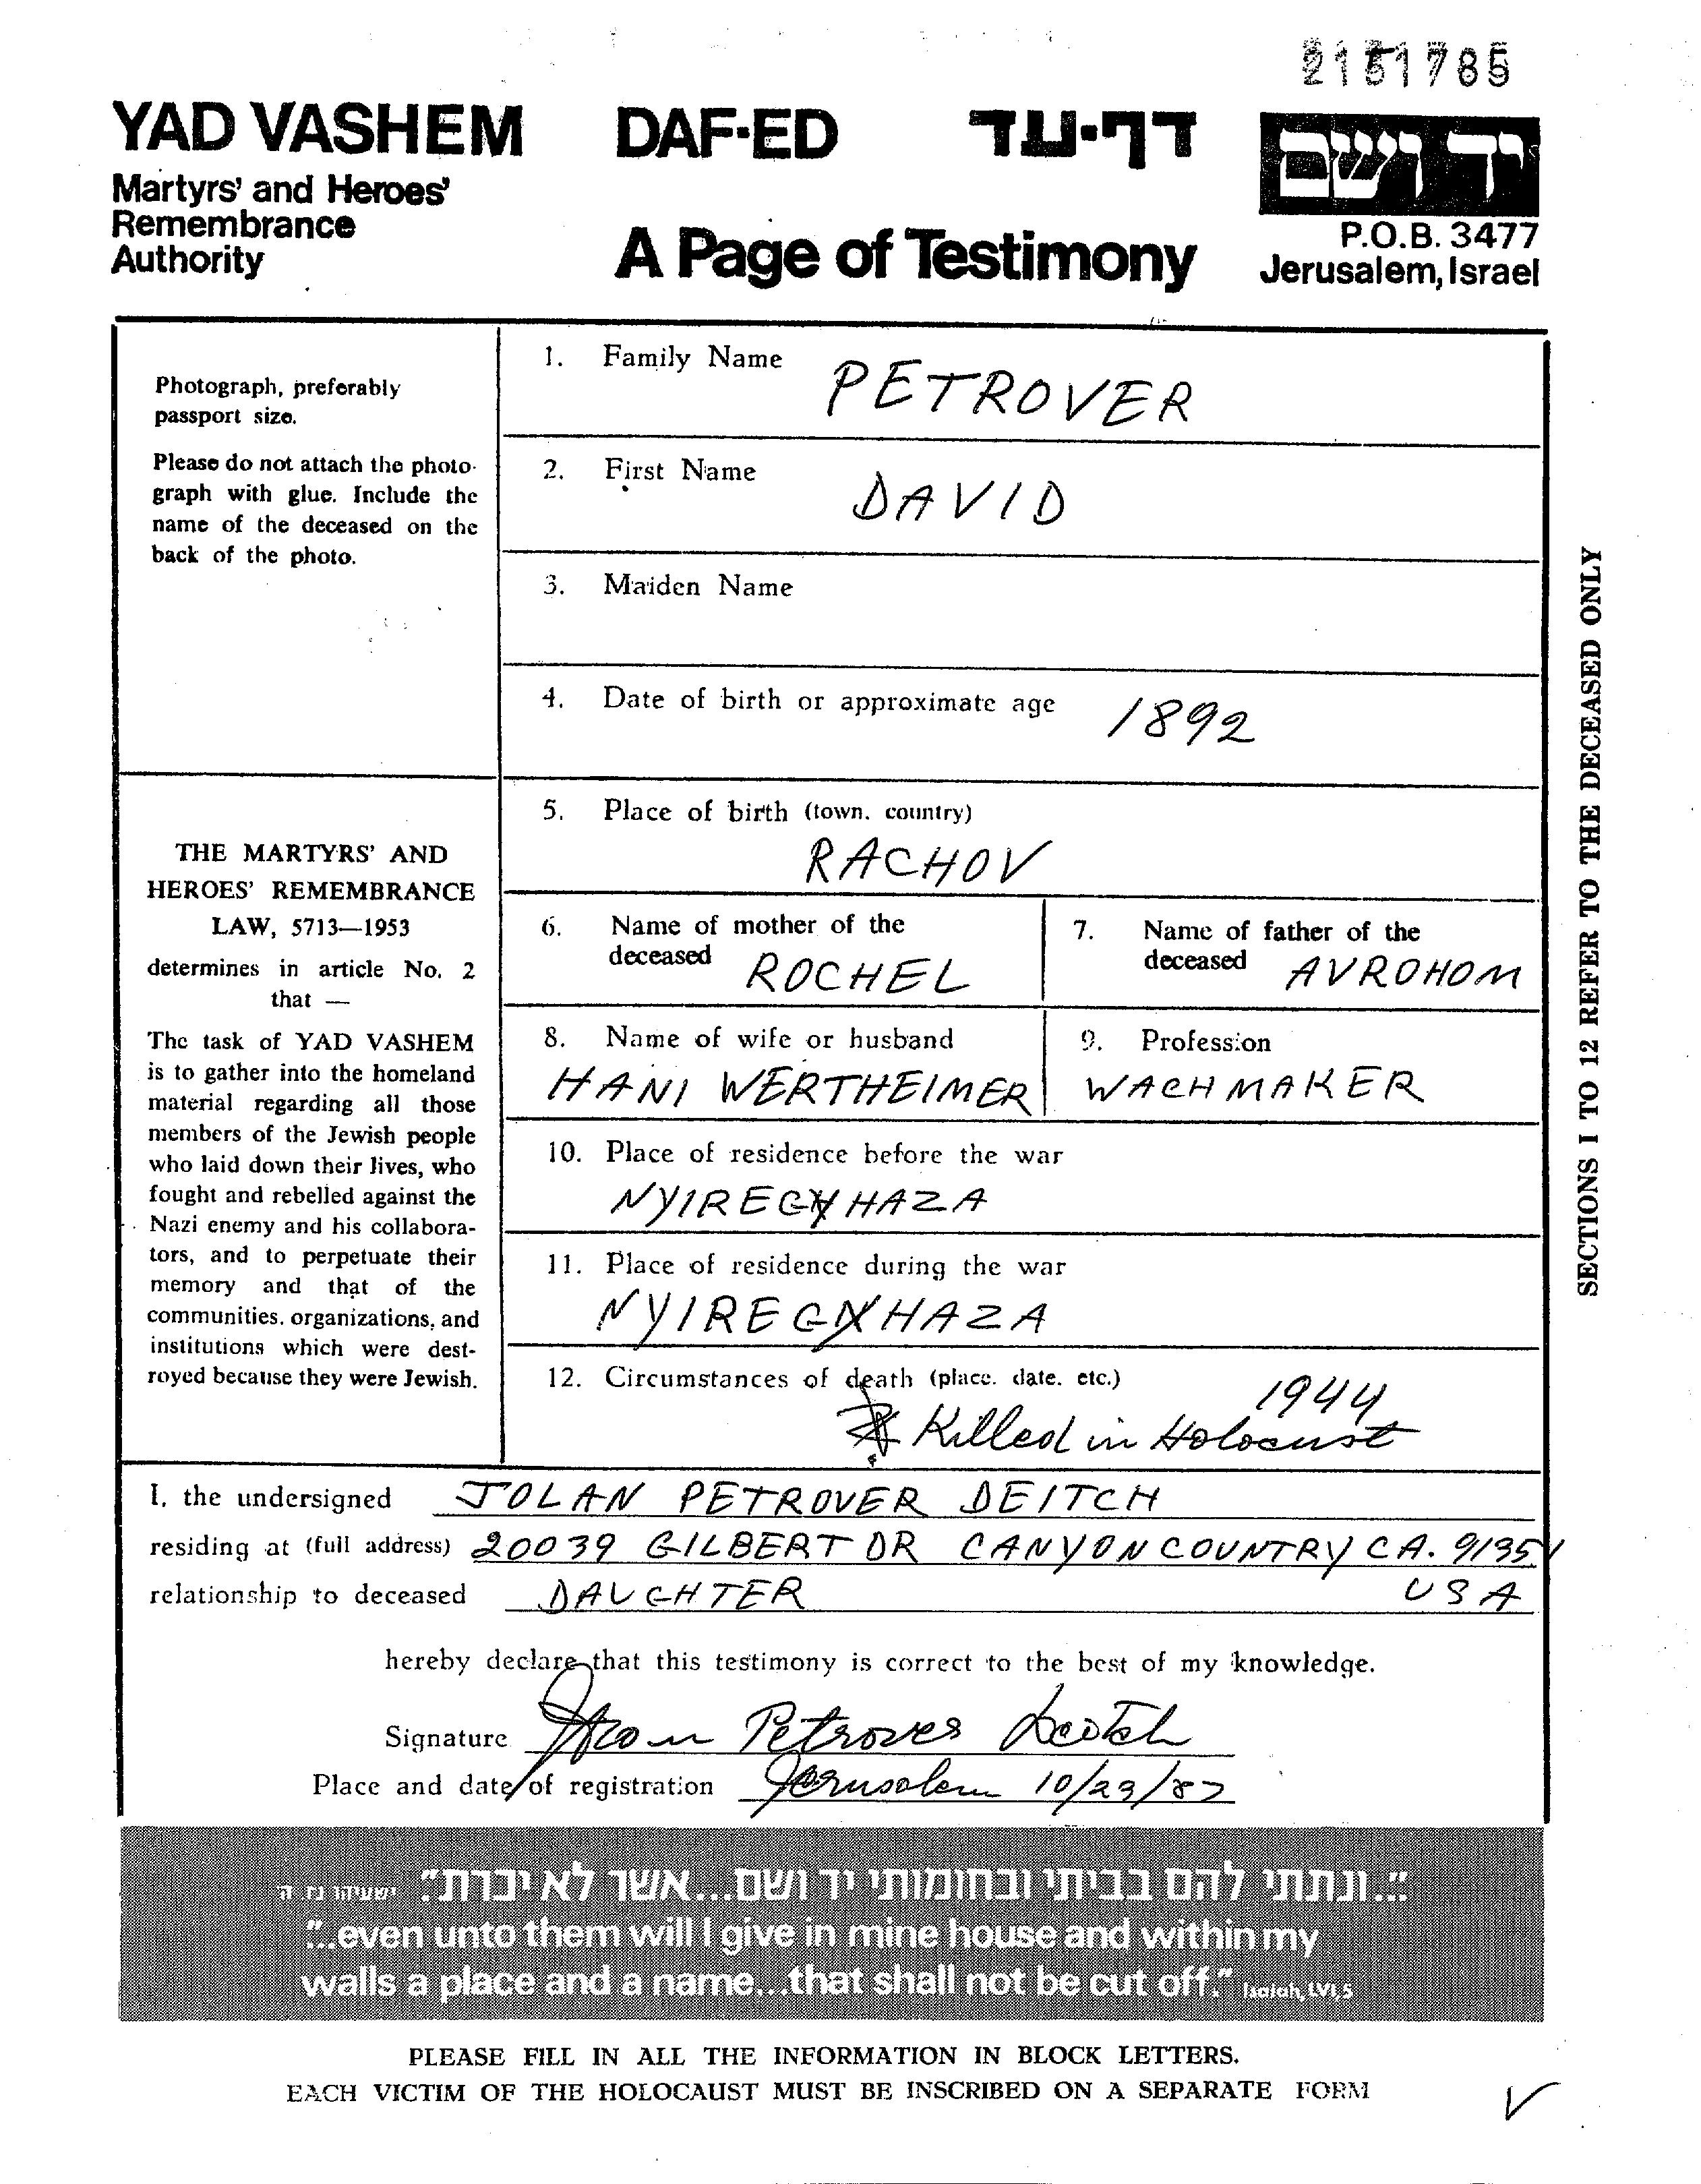 YAD VASHEM DAF-ED דף-עד יד ושם
Martyrs' and Heroes'
Remembrance
Authority
A Page of Testimony
P.O.B. 3477
Jerusalem, Israel
Photograph, preferably
passport size.
Please do not attach the photo-
graph with glue. Include the
name of the deceased on the
back of the photo.
THE MARTYRS' AND
HEROES' REMEMBRANCE
LAW, 5713—1953
determines in article No. 2
that —
The task of YAD VASHEM
is to gather into the homeland
material regarding all those
members of the Jewish people
who laid down their lives, who
fought and rebelled against the
Nazi enemy and his collabora-
tors, and to perpetuate their
memory and that of the
communities, organizations, and
institutions which were dest-
royed because they were Jewish.
1. Family Name PETROVER
2. First Name DAVID
3. Maiden Name
4. Date of birth or approximate age 1892
5. Place of birth (town, country)
RACHOV
6. Name of mother of the
deceased ROCHEL
7. Name of father of the
deceased AVROHOM
8. Name of wife or husband
HANI WERTHEIMER
9. Profession
WACHMAKER
10. Place of residence before the war
NYIREGYHAZA
11. Place of residence during the war
NYIREGYHAZA
12. Circumstances of death (place, date, etc.) 1944
Killed in Holocaust
SECTIONS 1 TO 12 REFER TO THE DECEASED ONLY
I, the undersigned JOLAN PETROVER DEITCH
residing at (full address) 20039 GILBERT DR CANYON COUNTRY CA. 91351
relationship to deceased DAUGHTER USA
hereby declare that this testimony is correct to the best of my knowledge.
Signature Petrover Deitch
Place and date of registration Jerusalem 10/23/87
"...ונתתי להם בביתי ובחומותי יד ושם...אשר לא יכרת". ישעיהו נו ה
"...even unto them will I give in mine house and within my
walls a place and a name...that shall not be cut off." Isaiah, LVI,5
PLEASE FILL IN ALL THE INFORMATION IN BLOCK LETTERS.
EACH VICTIM OF THE HOLOCAUST MUST BE INSCRIBED ON A SEPARATE FORM